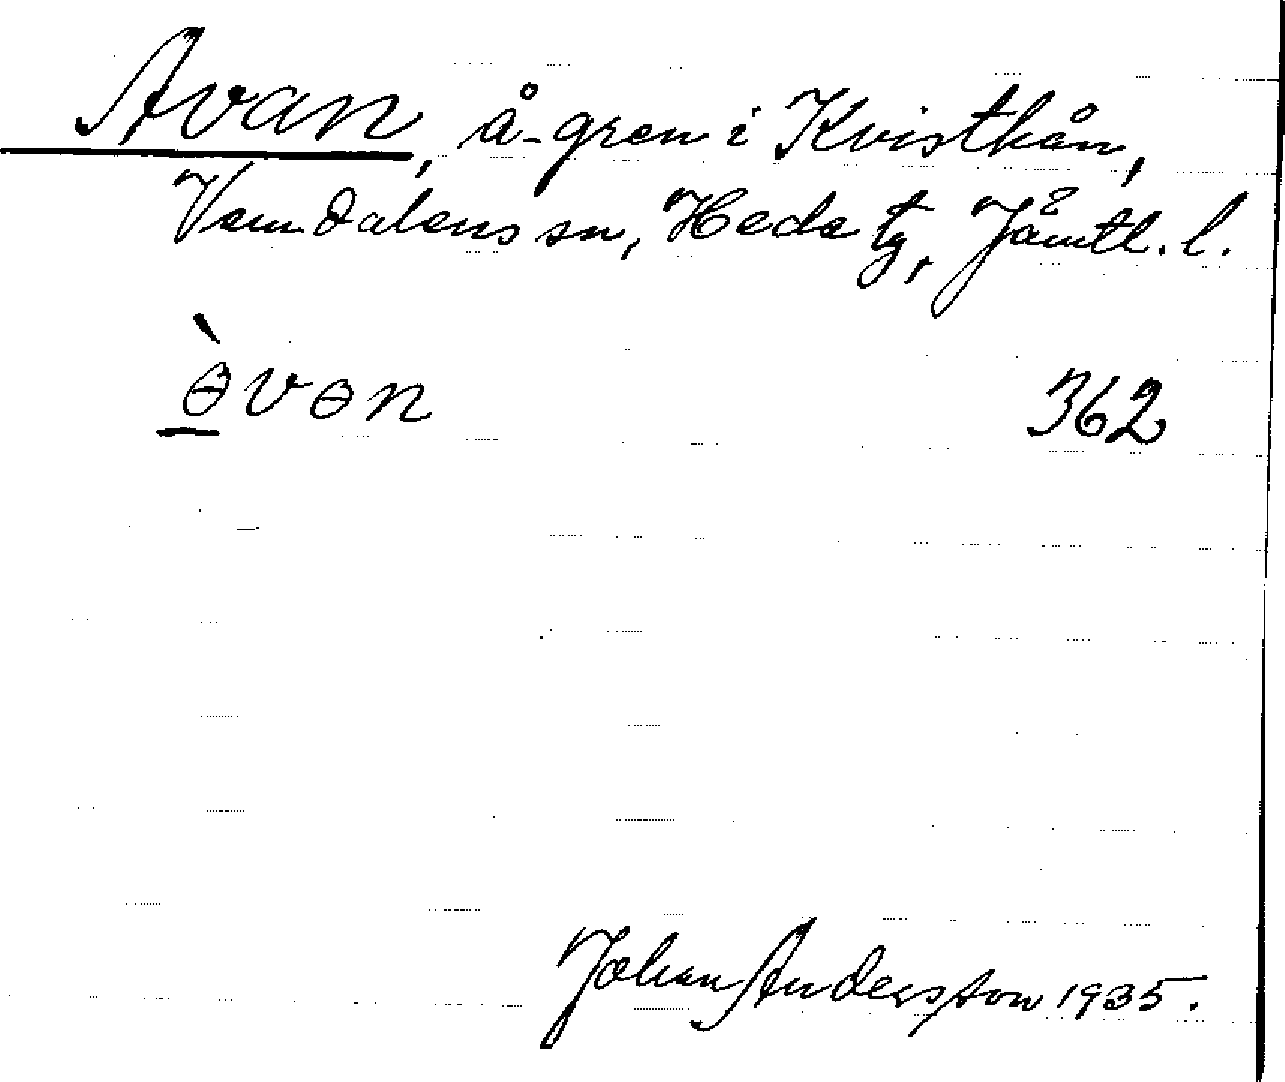 Avan, å-gren i Kvistkån,
Vemdalens sn, Heds tg, Jämtl. l.
ə̀vən 362
Johan Andersson 1935.